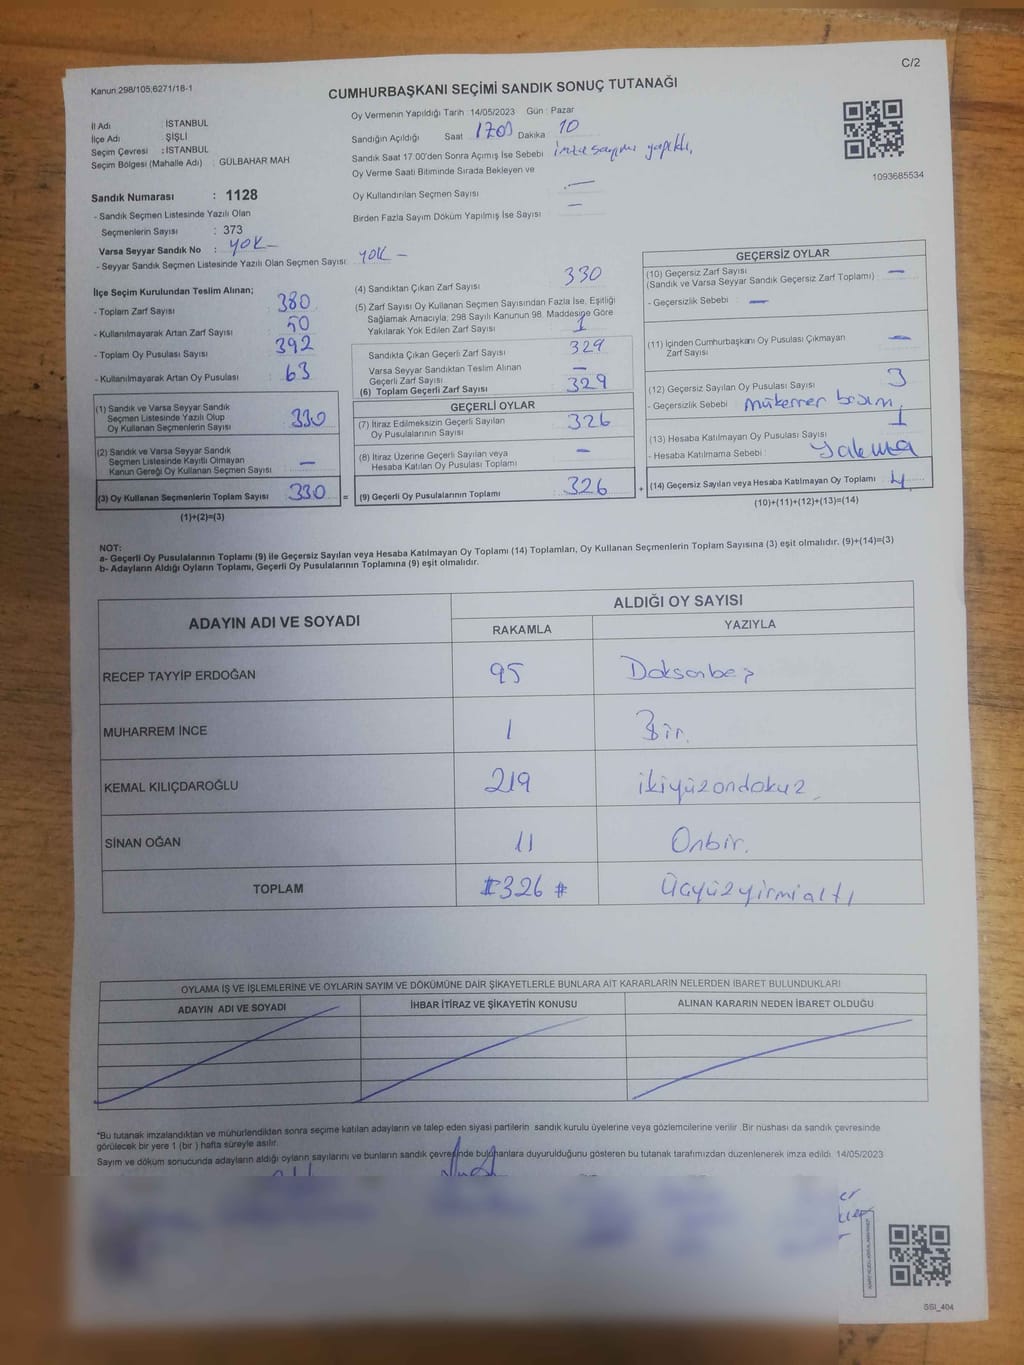 C/2
Kanun:298/105;6271/18-1
CUMHURBAŞKANI SEÇİMİ SANDIK SONUÇ TUTANAĞI
İl Adı : İSTANBUL
İlçe Adı : ŞİŞLİ
Seçim Çevresi : İSTANBUL
Seçim Bölgesi (Mahalle Adı) : GÜLBAHAR MAH
Sandık Numarası : 1128
- Sandık Seçmen Listesinde Yazılı Olan
Seçmenlerin Sayısı : 373
Varsa Seyyar Sandık No : YOK -
- Seyyar Sandık Seçmen Listesinde Yazılı Olan Seçmen Sayısı: YOK -
Oy Vermenin Yapıldığı Tarih :14/05/2023 Gün : Pazar
Sandığın Açıldığı Saat Dakika 10
Sandık Saat 17.00'den Sonra Açımış İse Sebebi imza sayımı yapıldı.
Oy Verme Saati Bitiminde Sırada Bekleyen ve
Oy Kullandırılan Seçmen Sayısı —
Birden Fazla Sayım Döküm Yapılmış İse Sayısı —
1093685534
İlçe Seçim Kurulundan Teslim Alınan;
- Toplam Zarf Sayısı 380
- Kullanılmayarak Artan Zarf Sayısı 50
- Toplam Oy Pusulası Sayısı 392
- Kullanılmayarak Artan Oy Pusulası 63
(1) Sandık ve Varsa Seyyar Sandık
Seçmen Listesinde Yazılı Olup
Oy Kullanan Seçmenlerin Sayısı 330
(2) Sandık ve Varsa Seyyar Sandık
Seçmen Listesinde Kayıtlı Olmayan
Kanun Gereği Oy Kullanan Seçmen Sayısı —
(3) Oy Kullanan Seçmenlerin Toplam Sayısı 330 =
(1)+(2)=(3)
(4) Sandıktan Çıkan Zarf Sayısı 330
(5) Zarf Sayısı Oy Kullanan Seçmen Sayısından Fazla İse, Eşitliği
Sağlamak Amacıyla; 298 Sayılı Kanunun 98. Maddesine Göre
Yakılarak Yok Edilen Zarf Sayısı 1
Sandıkta Çıkan Geçerli Zarf Sayısı 329
Varsa Seyyar Sandıktan Teslim Alınan
Geçerli Zarf Sayısı —
(6) Toplam Geçerli Zarf Sayısı 329
GEÇERLİ OYLAR
(7) İtiraz Edilmeksizin Geçerli Sayılan
Oy Pusulalarının Sayısı 326
(8) İtiraz Üzerine Geçerli Sayılan veya
Hesaba Katılan Oy Pusulası Toplamı —
(9) Geçerli Oy Pusulalarının Toplamı 326 +
GEÇERSİZ OYLAR
(10) Geçersiz Zarf Sayısı
(Sandık ve Varsa Seyyar Sandık Geçersiz Zarf Toplamı) : —
- Geçersizlik Sebebi : —
(11) İçinden Cumhurbaşkanı Oy Pusulası Çıkmayan
Zarf Sayısı —
(12) Geçersiz Sayılan Oy Pusulası Sayısı 3
- Geçersizlik Sebebi : Mükerrer basım.
(13) Hesaba Katılmayan Oy Pusulası Sayısı 1
- Hesaba Katılmama Sebebi : Yakma
(14) Geçersiz Sayılan veya Hesaba Katılmayan Oy Toplamı 4
(10)+(11)+(12)+(13)=(14)
NOT:
a- Geçerli Oy Pusulalarının Toplamı (9) ile Geçersiz Sayılan veya Hesaba Katılmayan Oy Toplamı (14) Toplamları, Oy Kullanan Seçmenlerin Toplam Sayısına (3) eşit olmalıdır. (9)+(14)=(3)
b- Adayların Aldığı Oyların Toplamı, Geçerli Oy Pusulalarının Toplamına (9) eşit olmalıdır.
ADAYIN ADI VE SOYADI ALDIĞI OY SAYISI
RAKAMLA YAZIYLA
RECEP TAYYİP ERDOĞAN 95 Doksanbeş
MUHARREM İNCE 1 Bir.
KEMAL KILIÇDAROĞLU 219 ikiyüzondokuz
SİNAN OĞAN 11 Onbir.
TOPLAM #326 # Üçyüzyirmialtı
OYLAMA İŞ VE İŞLEMLERİNE VE OYLARIN SAYIM VE DÖKÜMÜNE DAİR ŞİKAYETLERLE BUNLARA AİT KARARLARIN NELERDEN İBARET BULUNDUKLARI
ADAYIN ADI VE SOYADI İHBAR İTİRAZ VE ŞİKAYETİN KONUSU ALINAN KARARIN NEDEN İBARET OLDUĞU
*Bu tutanak imzalandıktan ve mühürlendikten sonra seçime katılan adayların ve talep eden siyasi partilerin sandık kurulu üyelerine veya gözlemcilerine verilir .Bir nüshası da sandık çevresinde
görülecek bir yere 1 (bir ) hafta süreyle asılır.
Sayım ve döküm sonucunda adayların aldığı oyların sayılarını ve bunların sandık çevresinde bulunanlara duyurulduğunu gösteren bu tutanak tarafımızdan düzenlenerek imza edildi. 14/05/2023
SSI_404